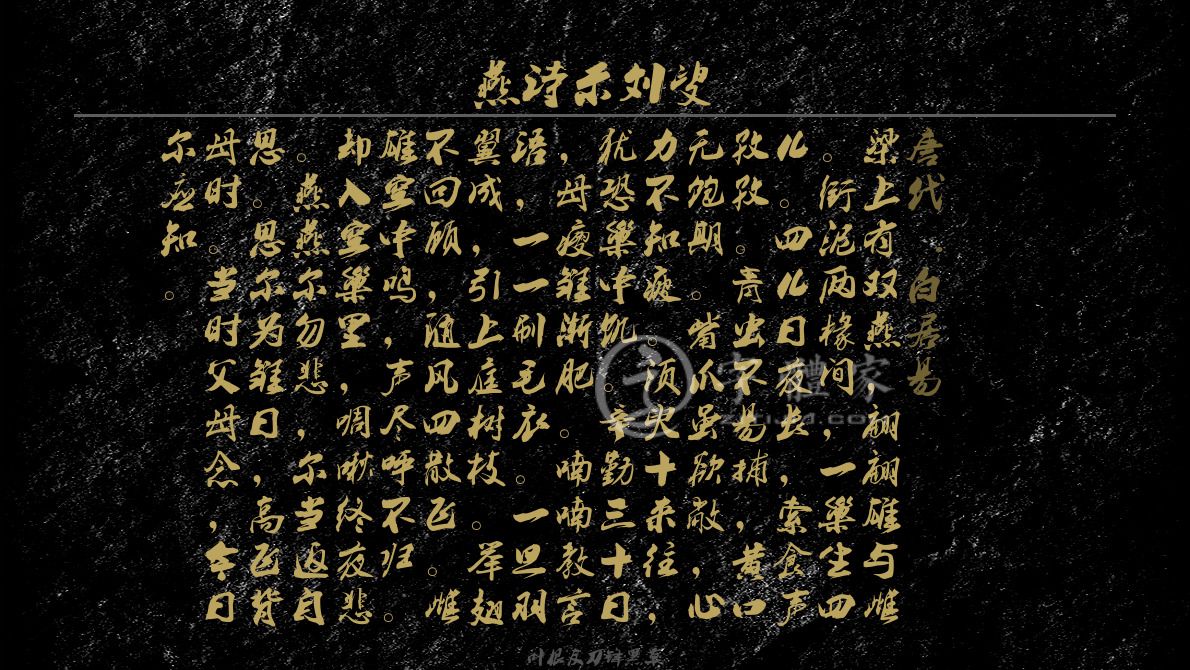 燕诗示刘叟
唐代·白居易
梁上有双燕,翩翩雄与雌
。衔泥两椽间,一巢生四
儿。四儿日夜长,索食声
孜孜。青虫不易捕,黄口
无饱期。嘴爪虽欲敝,心
力不知疲。须臾十来往,
犹恐巢中饥。辛勤三十日
,母瘦雏渐肥。喃喃教言
语,一一刷毛衣。一旦羽
翼成,引上庭树枝。举翅
不回顾,随风四散飞。雌
雄空中鸣,声尽呼不归。
却入空巢里,啁啾终夜悲
。燕燕尔勿悲,尔当返自
思。思尔为雏日,高飞背
母时。当时父母念,今日
尔应知。
字體家
叶根友刀锋黑草